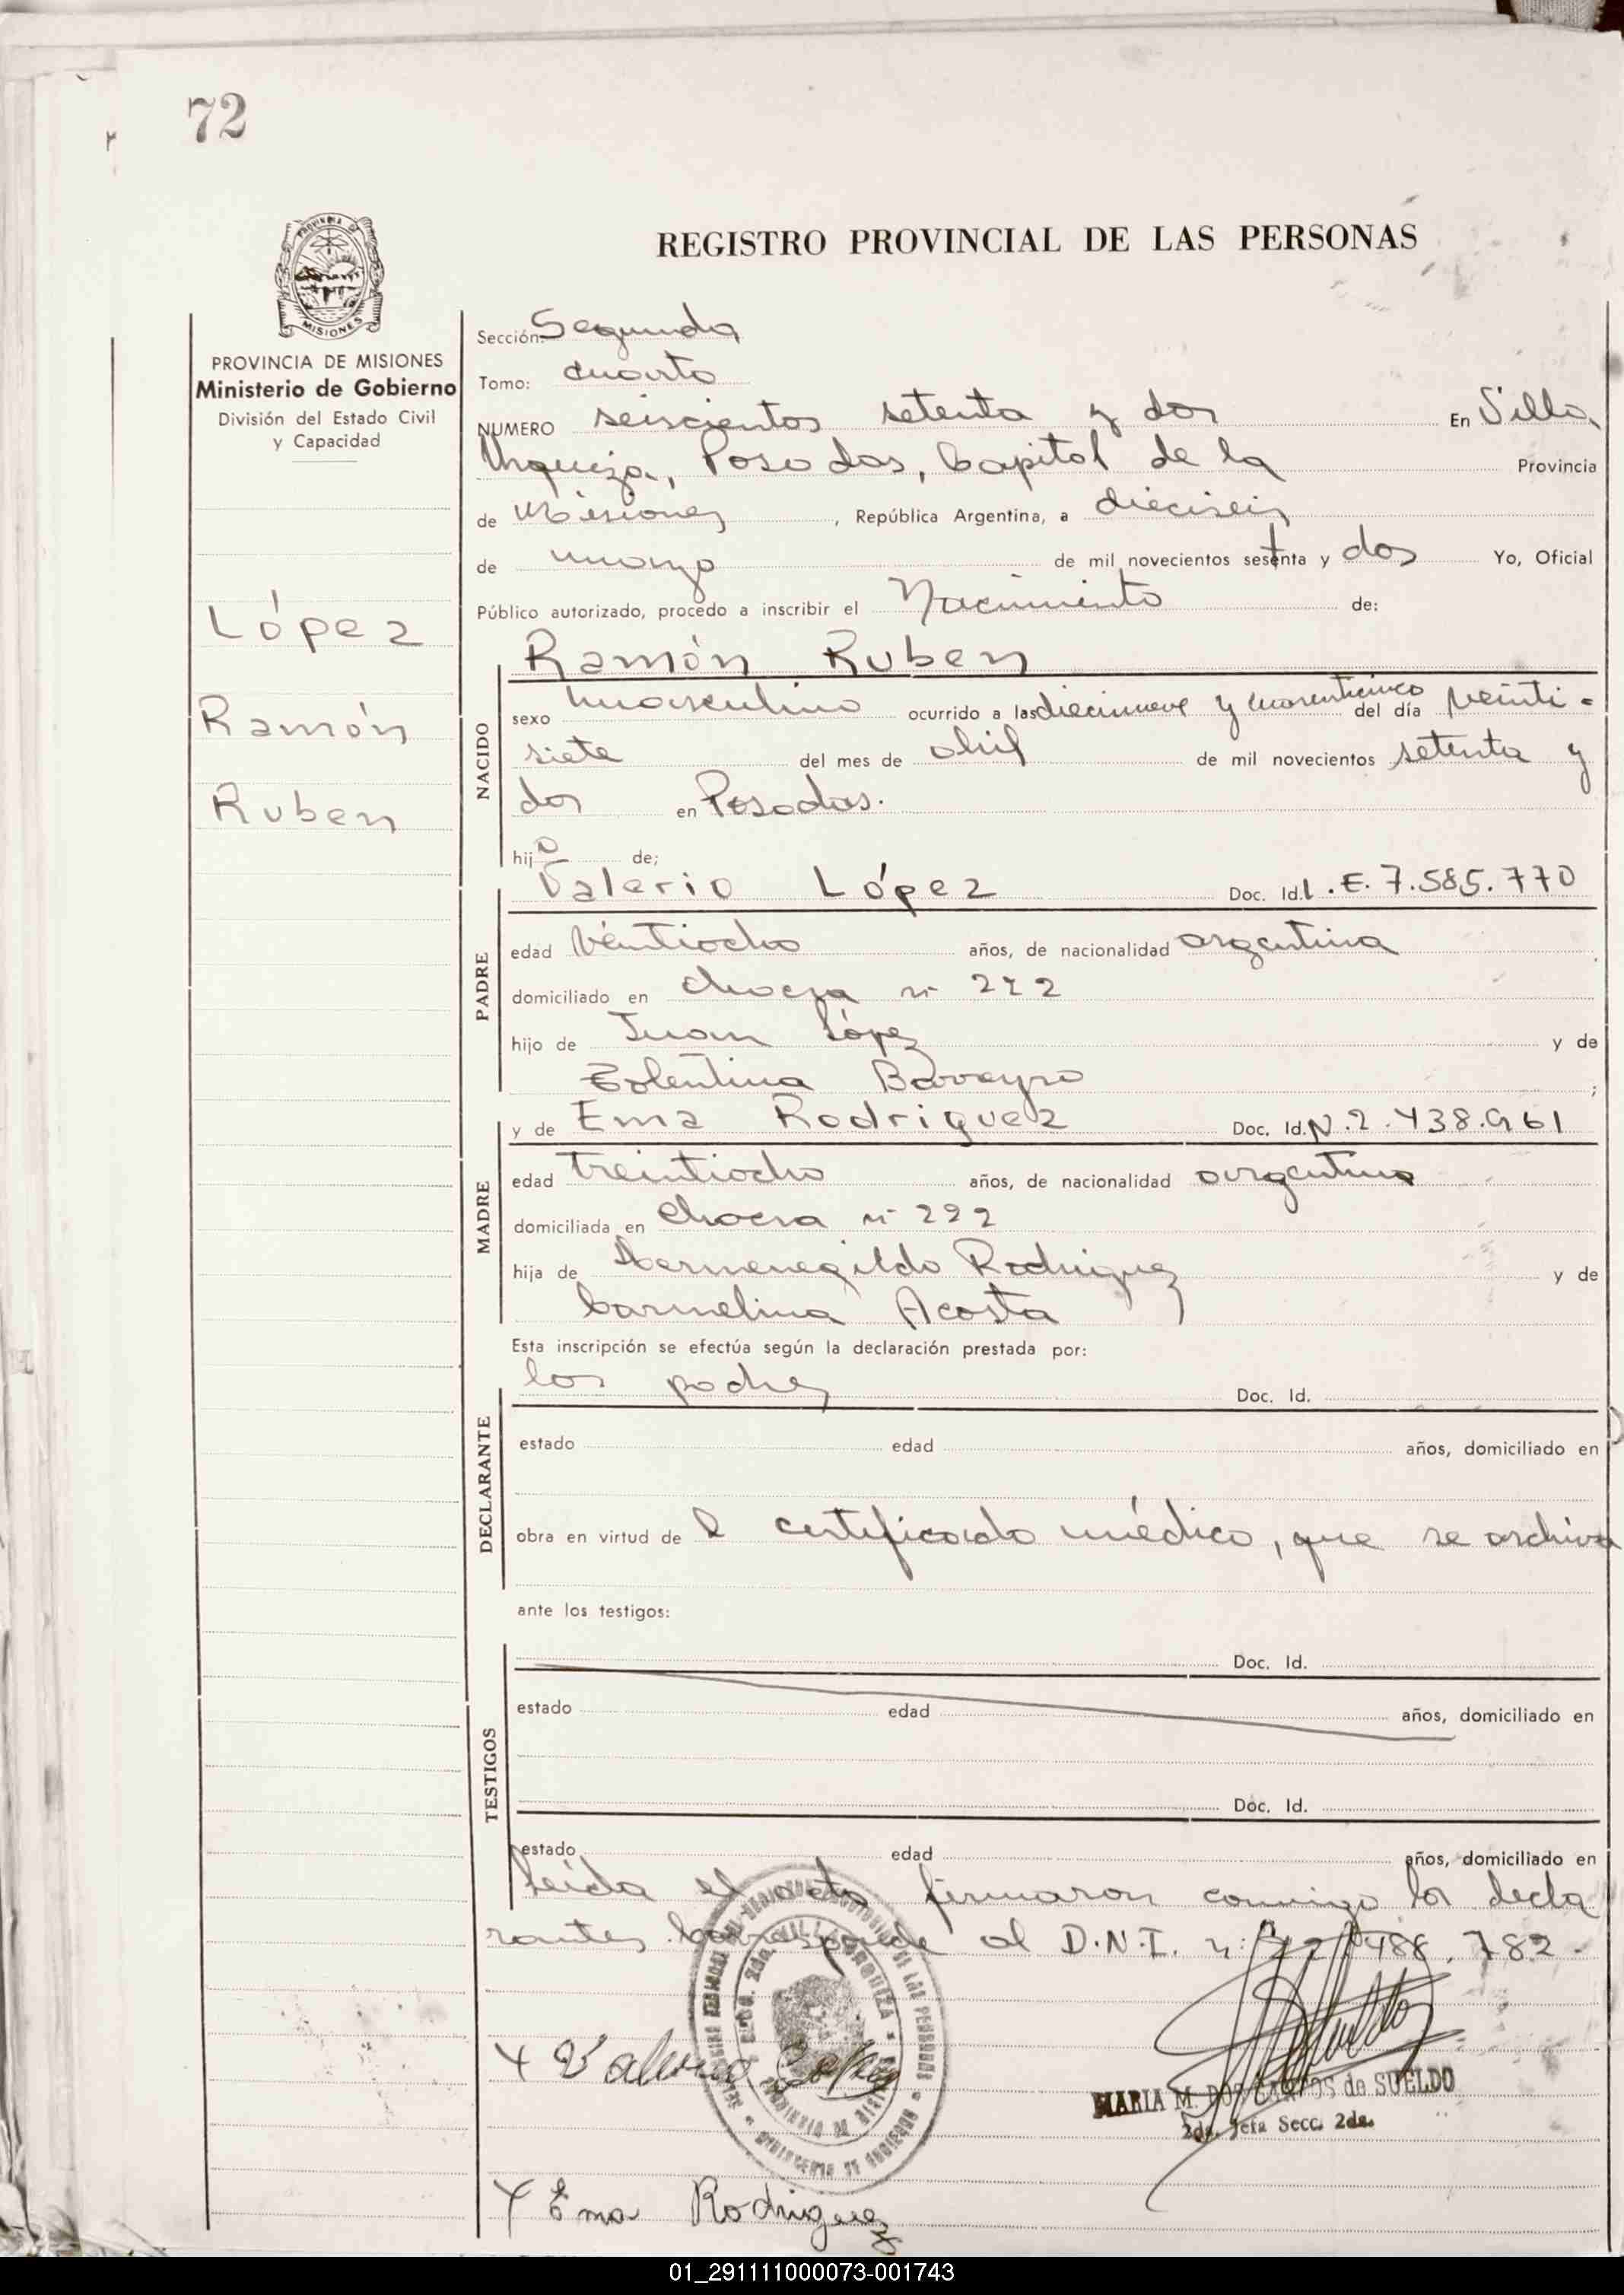 72
REGISTRO PROVINCIAL DE LAS PERSONAS
MISIONES
PROVINCIA DE MISIONES
Ministerio de Gobierno
División del Estado Civil
y Capacidad
López
Ramón
Ruben
Sección: Segunda
Tomo: cuarto
NUMERO seiscientos setenta y dos En Villa
Urquiza, Posadas, Capital de la Provincia
de Misiones, República Argentina, a dieciseis
de mayo de mil novecientos setenta y dos Yo, Oficial
Público autorizado, procedo a inscribir el Nacimiento de:
Ramón Ruben
NACIDO
sexo masculino ocurrido a las diecinueve y cuarenticinco del día veinti-
siete del mes de abril de mil novecientos setenta y
dos en Posadas.
hijo de;
Valerio López Doc. Id. L.E. 7.585.770
PADRE
edad veintiocho años, de nacionalidad argentina
domiciliado en chacra nº 222
hijo de Juan López y de
Tolentina Barreyro;
y de Ema Rodriguez Doc. Id. N. 2.438.961
MADRE
edad treintiocho años, de nacionalidad argentina
domiciliada en chacra nº 222
hija de Hermenegildo Rodriguez y de
Carmelina Acosta
Esta inscripción se efectúa según la declaración prestada por:
los padres Doc. Id.
DECLARANTE
estado edad años, domiciliado en
obra en virtud del certificado médico, que se archiva
ante los testigos:
Doc. Id.
TESTIGOS
estado edad años, domiciliado en
Doc. Id.
estado edad años, domiciliado en
Leída el acta firmaron conmigo los decla
rantes. Corresponde al D.N.I. nº: 22.488.782-
Valerio López
MARIA M. DOS SANTOS de SUELDO
2da. Jefa Secc. 2da.
Ema Rodriguez
01_291111000073-001743